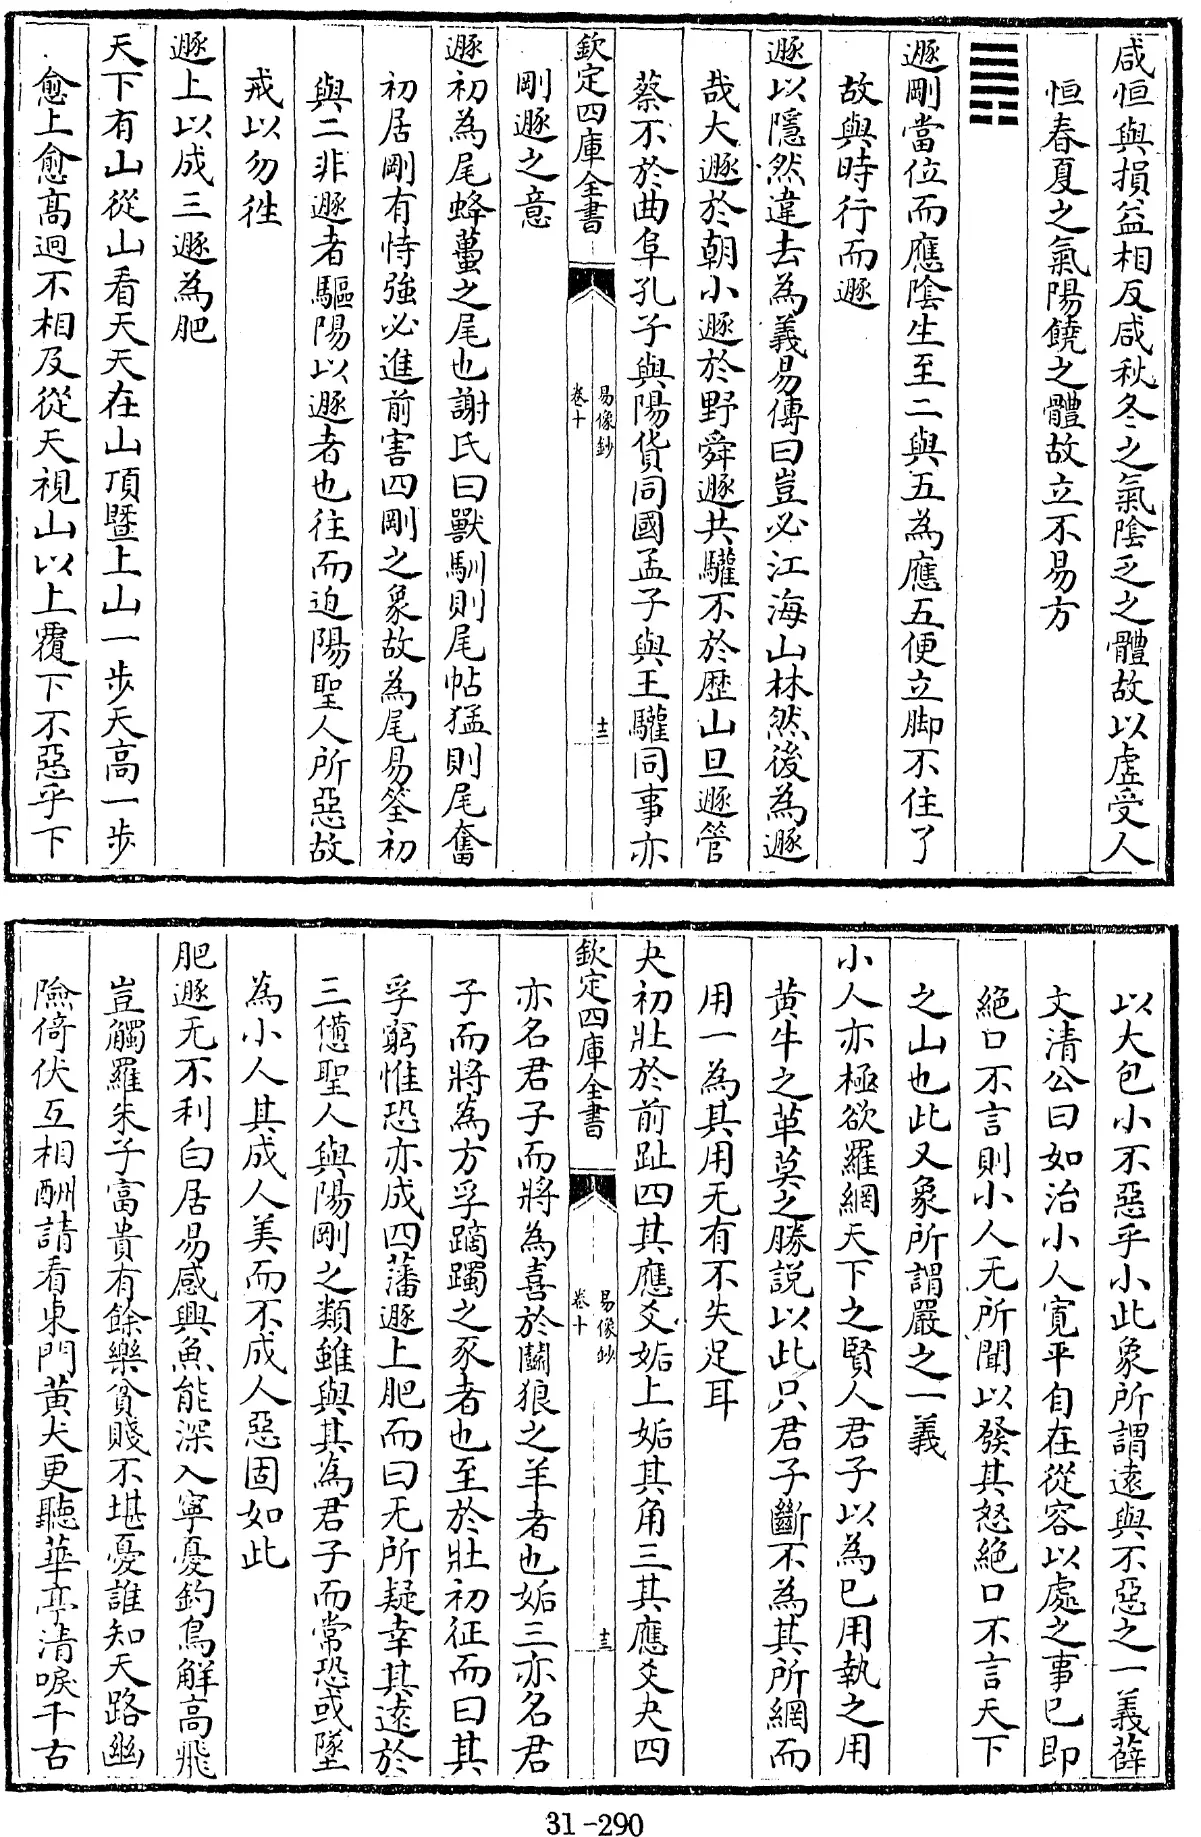 咸恒與損益相反咸秋冬之氣陰乏之體故以虛受人
恒春夏之氣陽饒之體故立不易方
䷠
遯剛當位而應陰生至二與五為應五便立脚不住了
故與時行而遯
遯以隱然違去為義易傳曰豈必江海山林然後為遯
哉大遯於朝小遯於野舜遯共驩不於歴山旦遯管
蔡不於曲阜孔子與陽貨同國孟子與王驩同事亦
欽定四庫全書
易像鈔
卷十
十二
剛遯之意
遯初為尾蜂蠆之尾也謝氏曰獸馴則尾帖猛則尾奮
初居剛有恃強必進前害四剛之象故為尾易筌初
與二非遯者驅陽以遯者也往而迫陽聖人所惡故
戒以勿徃
遯上以成三遯為肥
天下有山從山看天天在山頂暨上山一步天高一步
愈上愈高迥不相及從天視山以上覆下不惡乎下
以大包小不惡乎小此象所謂遠與不惡之一義薛
文清公曰如治小人寛平自在從容以處之事已即
絶口不言則小人无所聞以發其怒絶口不言天下
之山也此又象所謂嚴之一義
小人亦極欲羅網天下之賢人君子以為已用執之用
黄牛之革莫之勝説以此只君子斷不為其所網而
用一為其用无有不失足耳
夬初壯於前趾四其應爻姤上姤其角三其應爻夬四
欽定四庫全書
易像鈔
卷十
十三
亦名君子而將為喜於鬬狼之羊者也姤三亦名君
子而將為方孚蹢躅之豕者也至於壯初征而曰其
孚窮惟恐亦成四藩遯上肥而曰无所疑幸其逺於
三憊聖人與陽剛之類雖與其為君子而常恐或墜
為小人其成人美而不成人惡固如此
肥遯无不利白居易感興魚能深入寧憂釣鳥解高飛
豈觸羅朱子富貴有餘樂貧賤不堪憂誰知天路幽
險倚伏互相酬請看東門黄犬更聽華亭清唳千古
31-290